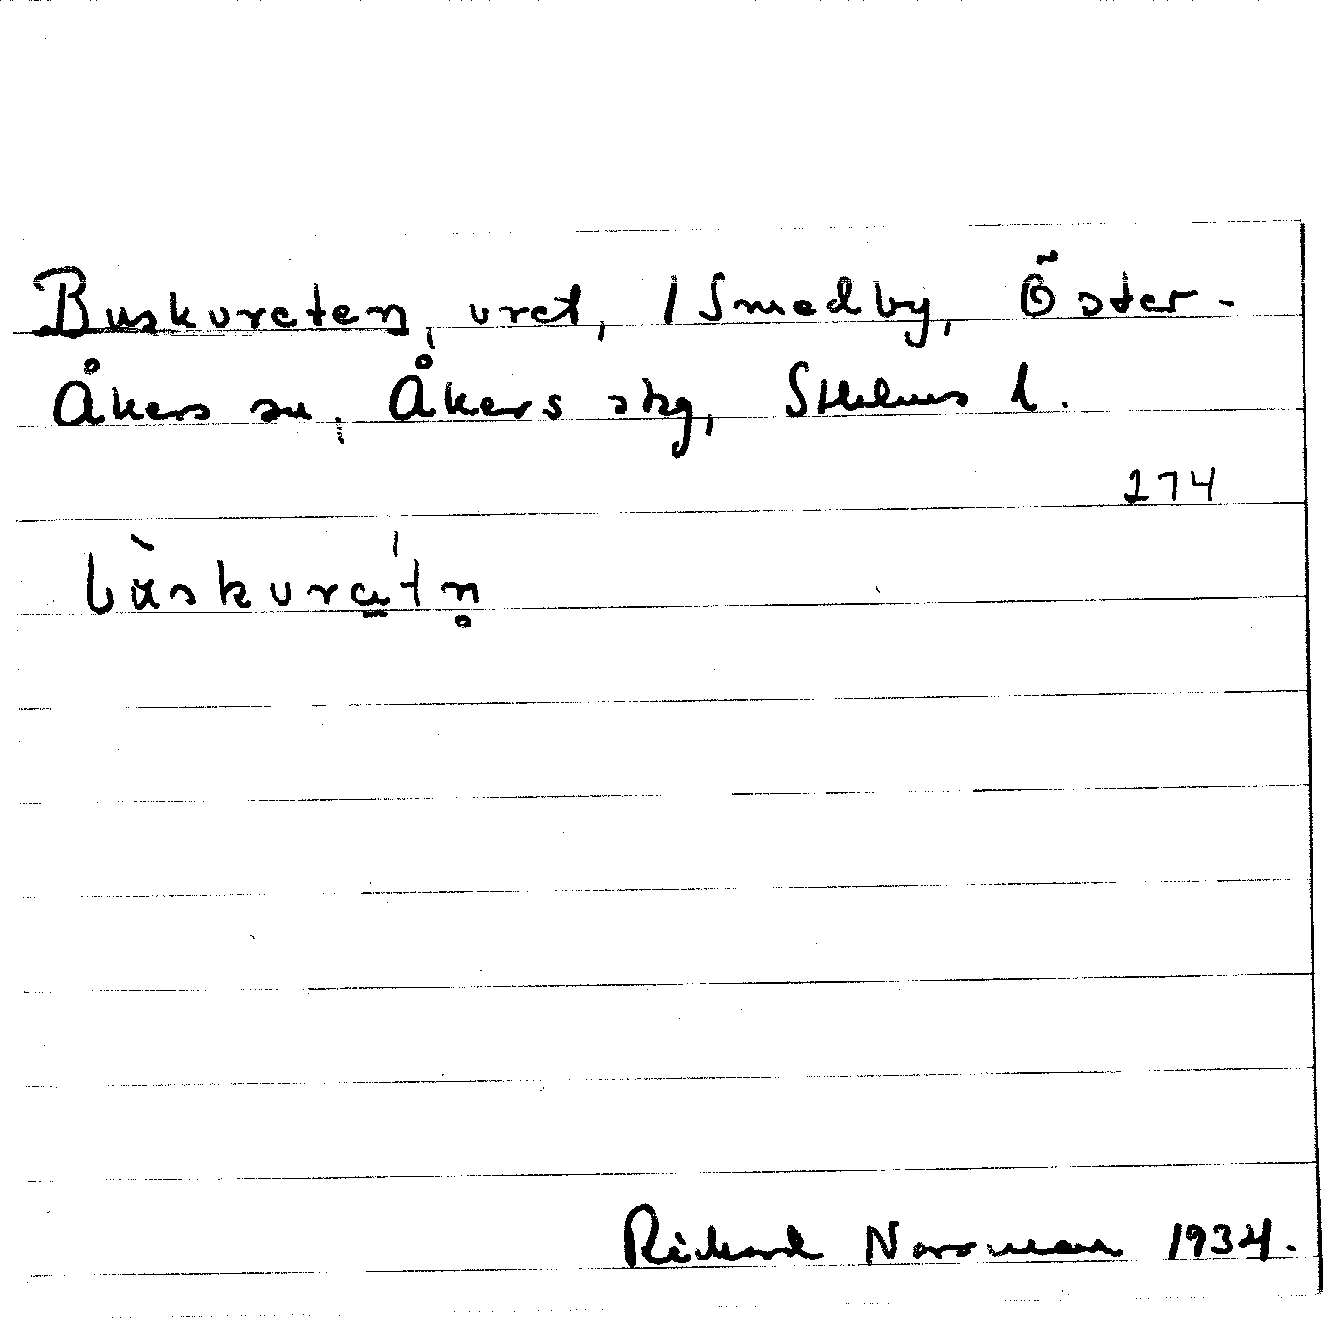 Buskvreten, vret, / Smedby, Öster-
Åkers sn, Åkers skg, Sthlms l.
274
bùskvra̲'tn̥
Richard Norrman 1934.